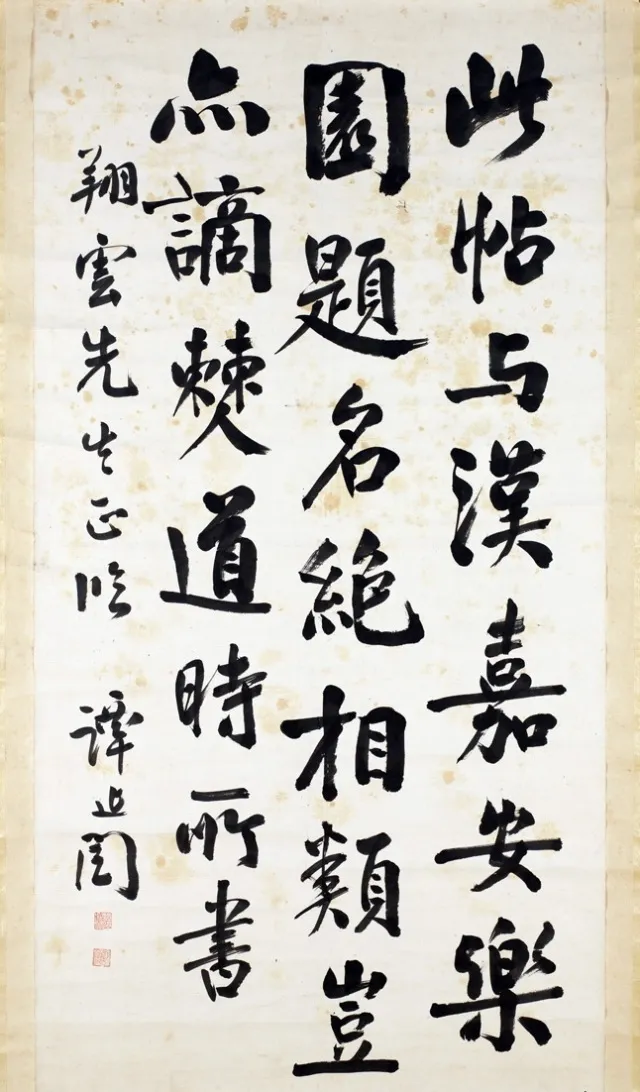 此帖与漢嘉安樂
園題名絶相類豈
亦謫僰道時所書
翔雲先生正臨 譚延闓